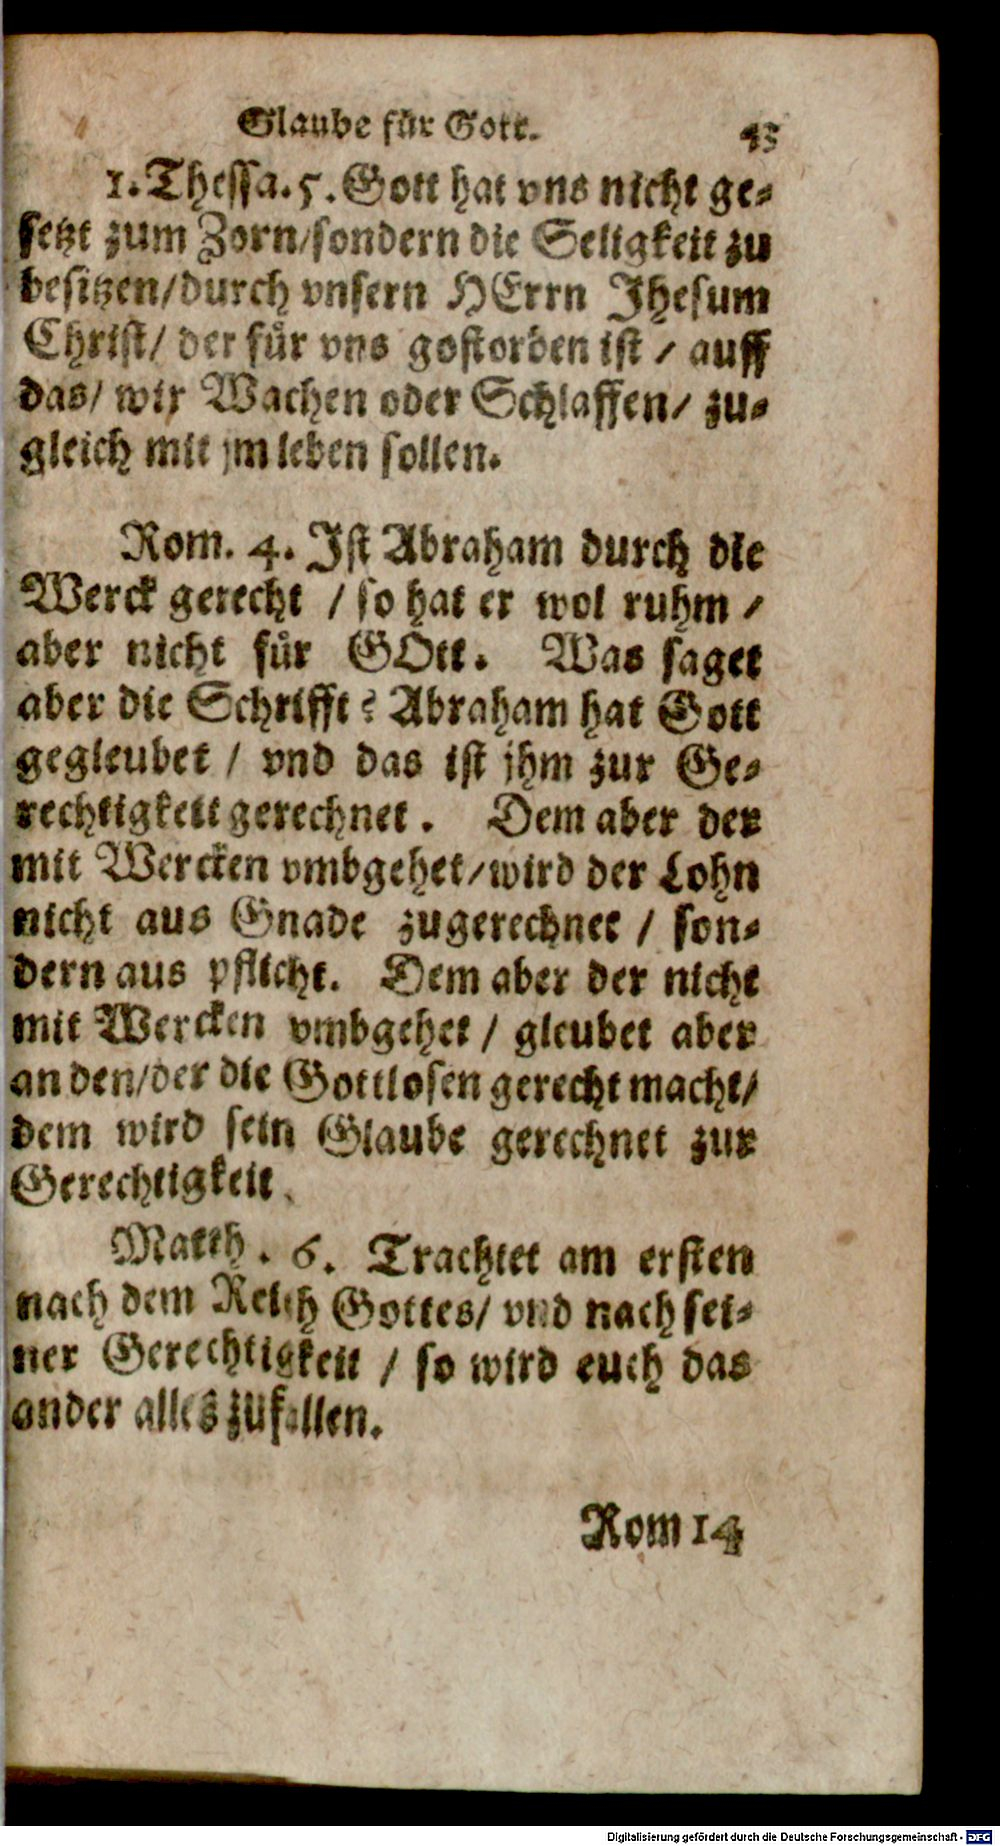 Glaube für Gott. 43
1. Thessa. 5. Gott hat vns nicht ge-
setzt zum Zorn/sondern die Seligkeit zu
besitzen/durch vnsern HErrn Jhesum
Christ/ der für vns gostorben ist / auff
das/ wir Wachen oder Schlaffen/ zu-
gleich mit jm leben sollen.
Rom. 4. Jst Abraham durch die
Werck gerecht / so hat er wol ruhm /
aber nicht für GOtt. Was saget
aber die Schrifft? Abraham hat Gott
gegleubet / vnd das ist jhm zur Ge-
rechtigkeit gerechnet. Dem aber der
mit Wercken vmbgehet/wird der Lohn
nicht aus Gnade zugerechnet / son-
dern aus pflicht. Dem aber der nicht
mit Wercken vmbgehet / gleubet aber
an den/der die Gottlosen gerecht macht/
dem wird sein Glaube gerechnet zur
Gerechtigkeit.
Matth. 6. Trachtet am ersten
nach dem Reich Gottes/ vnd nach sei-
ner Gerechtigkeit / so wird euch das
ander alles zufallen.
Rom 14
Digitalisierung gefördert durch die Deutsche Forschungsgemeinschaft - DFG